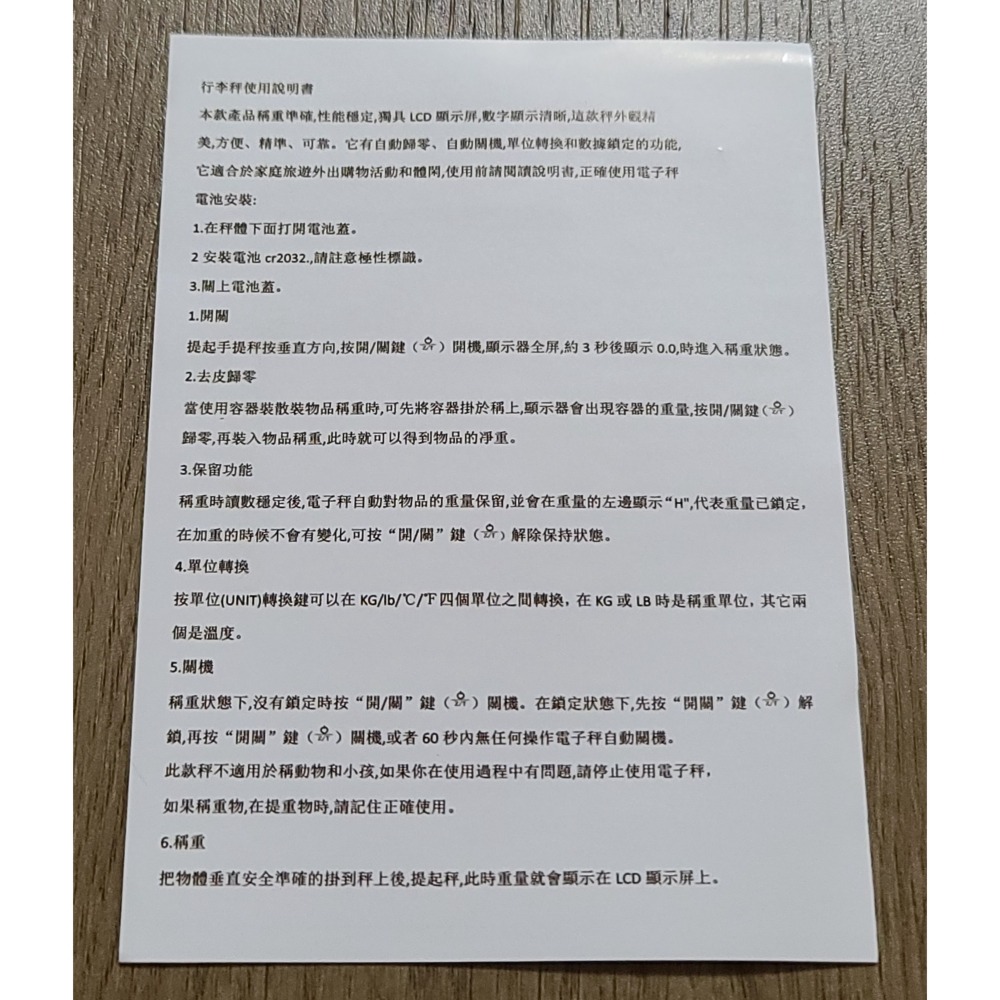 行李秤使用說明書
本款產品稱重準確,性能穩定,獨具 LCD 顯示屏,數字顯示清晰,這款秤外觀精
美,方便、精準、可靠。它有自動歸零、自動關機,單位轉換和數據鎖定的功能,
它適合於家庭旅遊外出購物活動和體閑,使用前請閱讀說明書,正確使用電子秤
電池安裝:
1.在秤體下面打開電池蓋。
2 安裝電池 cr2032.,請註意極性標識。
3.關上電池蓋。
1.開關
提起手提秤按垂直方向,按開/關鍵（）開機,顯示器全屏,約 3 秒後顯示 0.0,時進入稱重狀態。
2.去皮歸零
當使用容器裝散裝物品稱重時,可先將容器掛於稱上,顯示器會出現容器的重量,按開/關鍵（）
歸零,再裝入物品稱重,此時就可以得到物品的凈重。
3.保留功能
稱重時讀數穩定後,電子秤自動對物品的重量保留,並會在重量的左邊顯示“H",代表重量已鎖定，
在加重的時候不會有變化,可按“開/關”鍵（）解除保持狀態。
4.單位轉換
按單位(UNIT)轉換鍵可以在 KG/lb/℃/℉四個單位之間轉換，在 KG 或 LB 時是稱重單位，其它兩
個是溫度。
5.關機
稱重狀態下,沒有鎖定時按“開/關”鍵（）關機。在鎖定狀態下,先按“開關”鍵（）解
鎖,再按“開關”鍵（）關機,或者 60 秒內無任何操作電子秤自動關機。
此款秤不適用於稱動物和小孩,如果你在使用過程中有問題,請停止使用電子秤，
如果稱重物,在提重物時,請記住正確使用。
6.稱重
把物體垂直安全準確的掛到秤上後,提起秤,此時重量就會顯示在 LCD 顯示屏上。